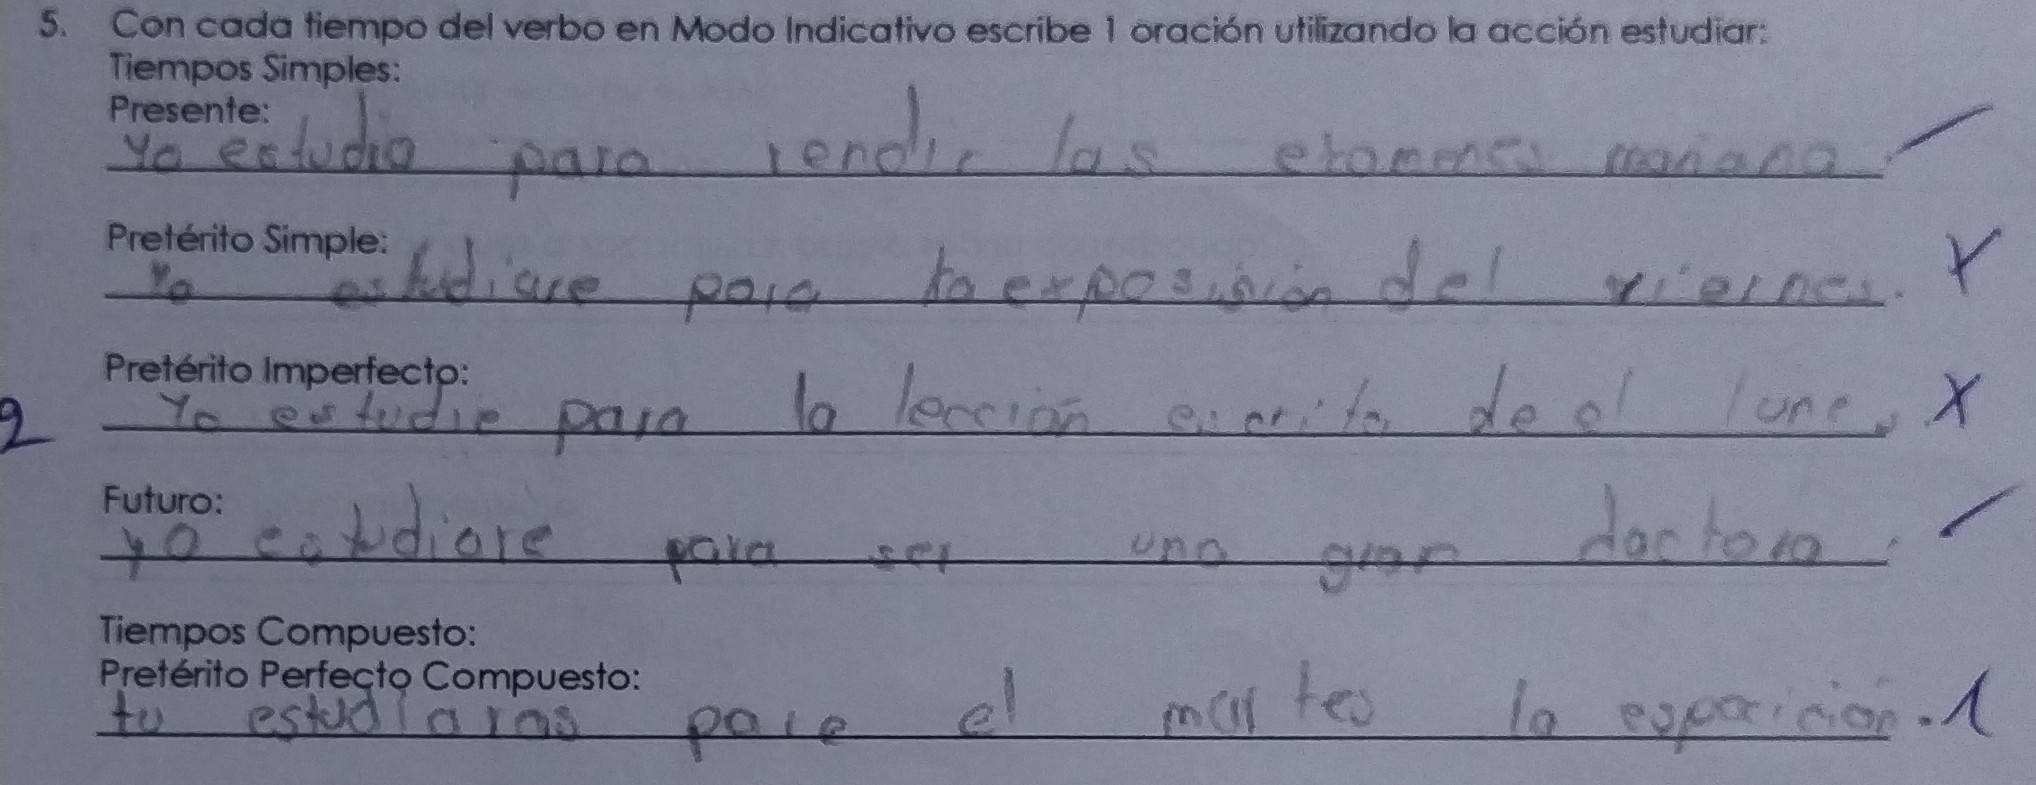 5. Con cada tiempo del verbo en Modo Indicativo escribe 1 oración utilizando la acción estudiar:
Tiempos Simples:
Presente:
Yo estudio para rendir las examenes mañana
Pretérito Simple:
Yo estudiare para la exposisión del viernes.
Pretérito Imperfecto:
2 Yo estudie para la lección escrita de el lunes
Futuro:
yo estudiare para ser una gran doctora.
Tiempos Compuesto:
Pretérito Perfecto Compuesto:
tu estudiaras para el martes la